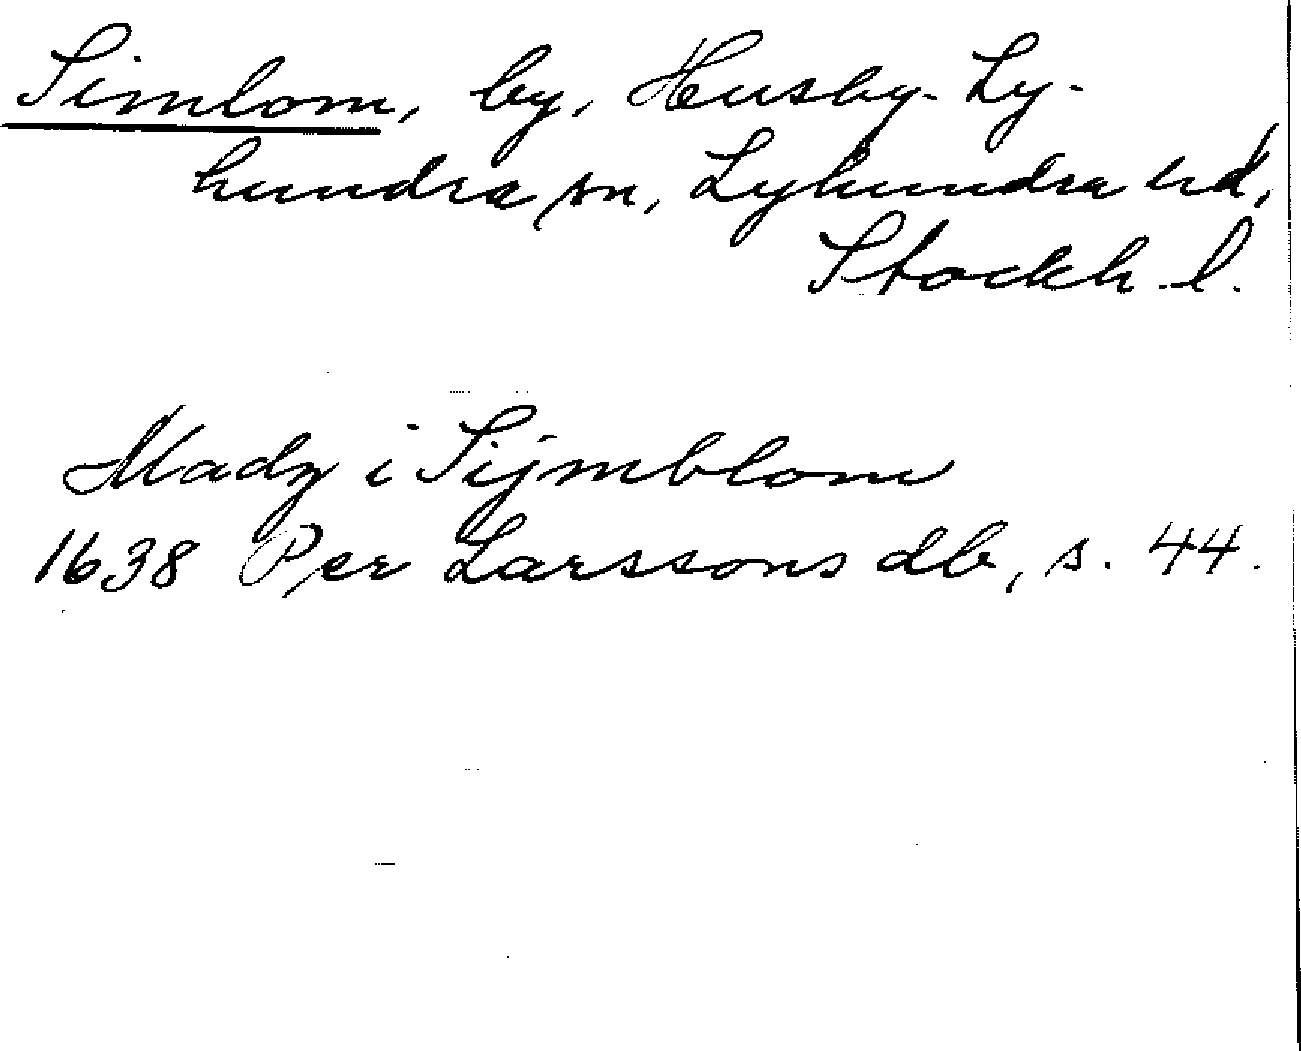 Simlom, by, Husby-Ly-
hundra sn, Lyhundra hd,
Stockh. l.
Madz i Sijmblom
1638 Per Larssons db, s. 44.